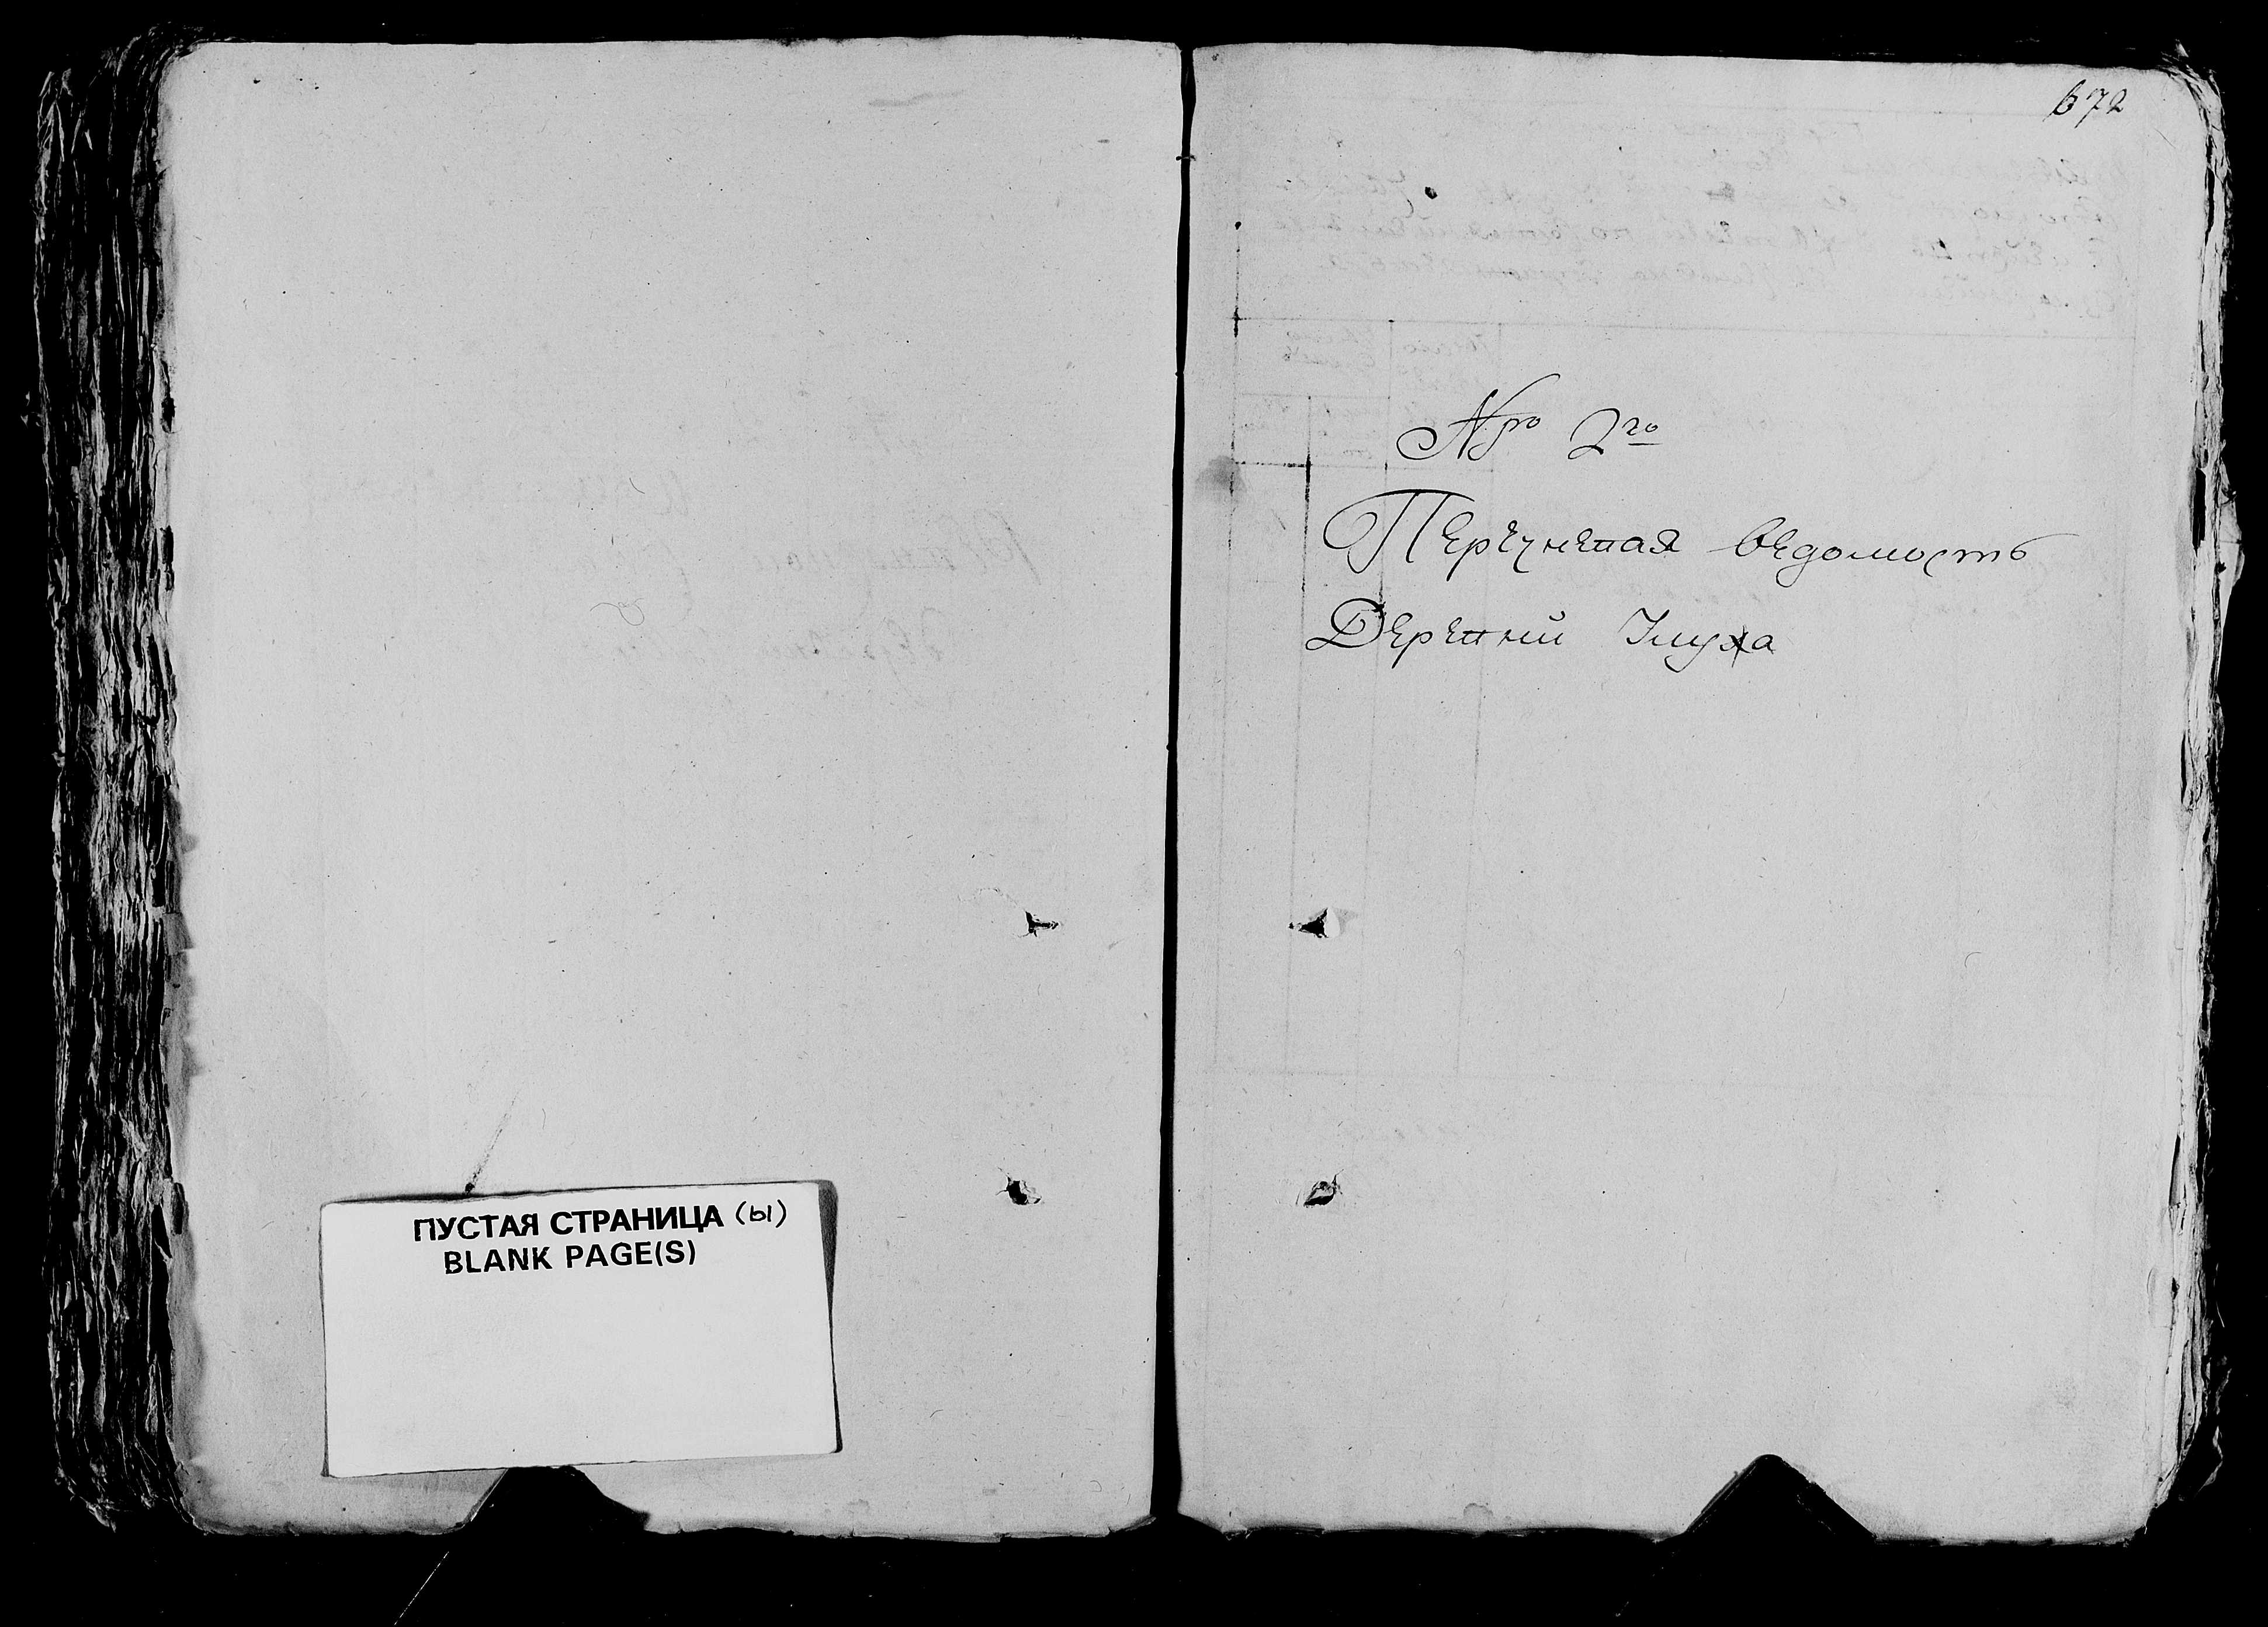 ПУСТАЯ СТРАНИЦА (Ы)
BLANK PAGE(S)
672
Nро 2го
Перечневая ведомость
Деревни